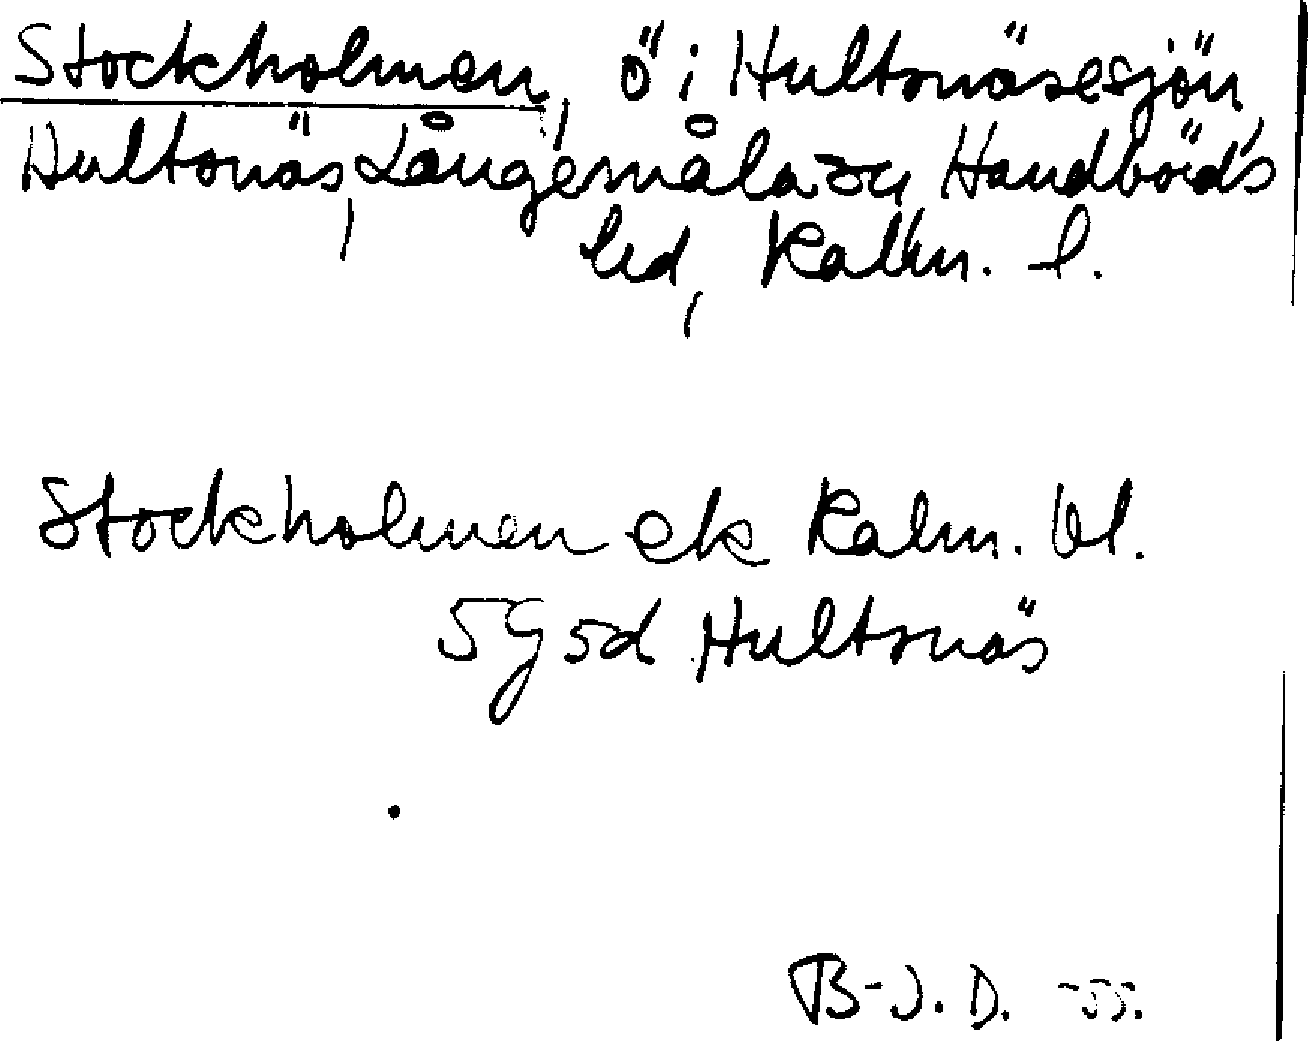 Stockholmen, ö i Hultsnäsesjön,
Hultsnäs, Långemåla sn Handbörds
hd, Kalm. l.
Stockholmen ek Kalm. bl.
5G5d Hultsnäs
B-J. D. -55.